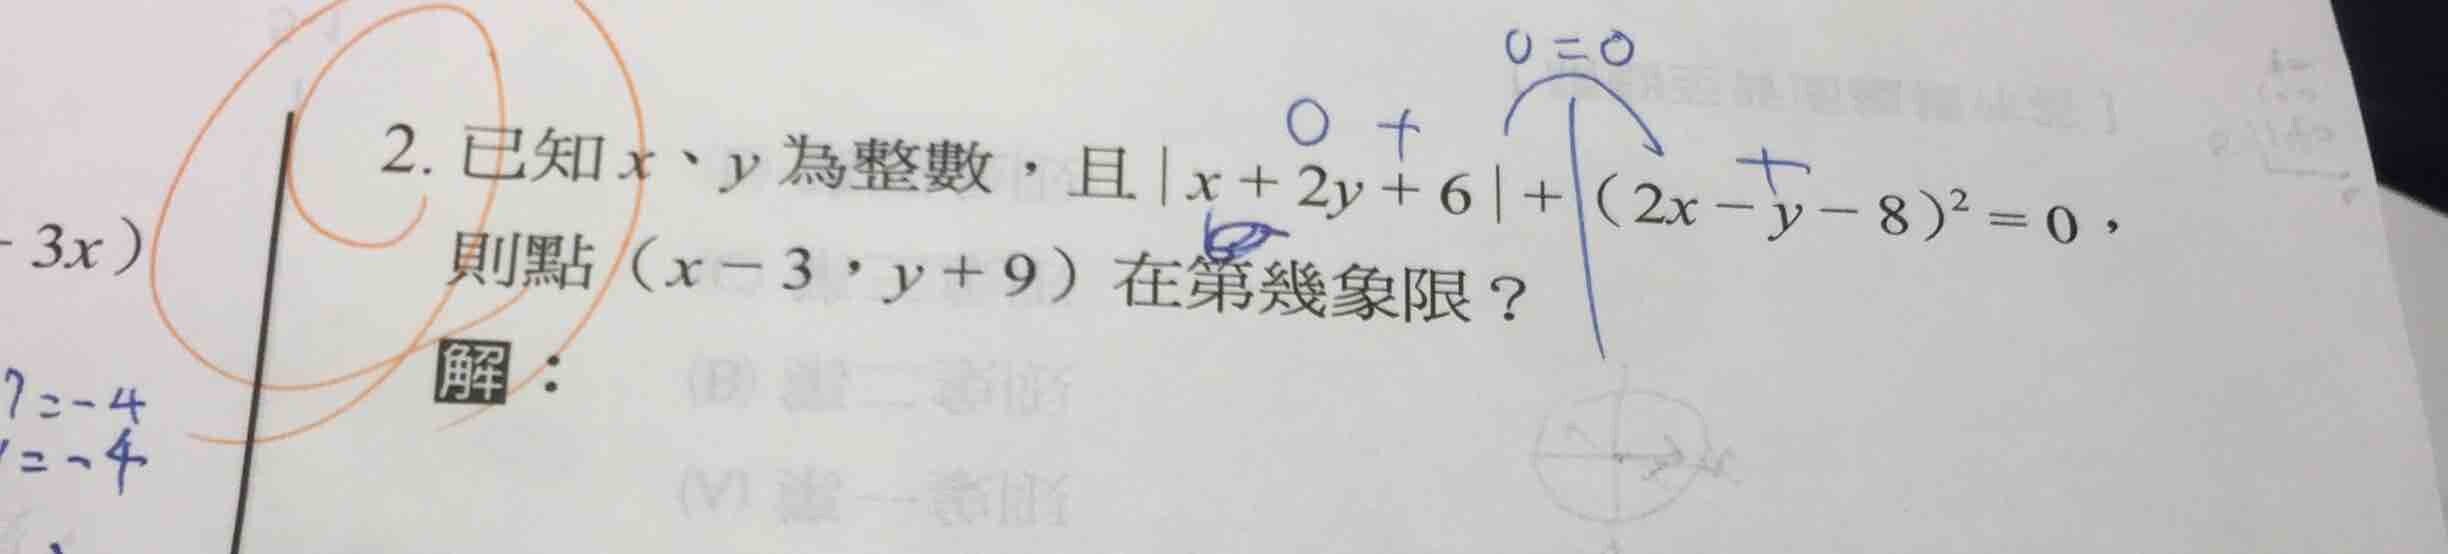 0=0
0 + +
2. 已知 x、y 為整數，且 | x + 2y + 6 | + (2x − y − 8)² = 0，
則點（x − 3，y + 9）在第幾象限？
- 3x）
解：
= - 4
= - 4